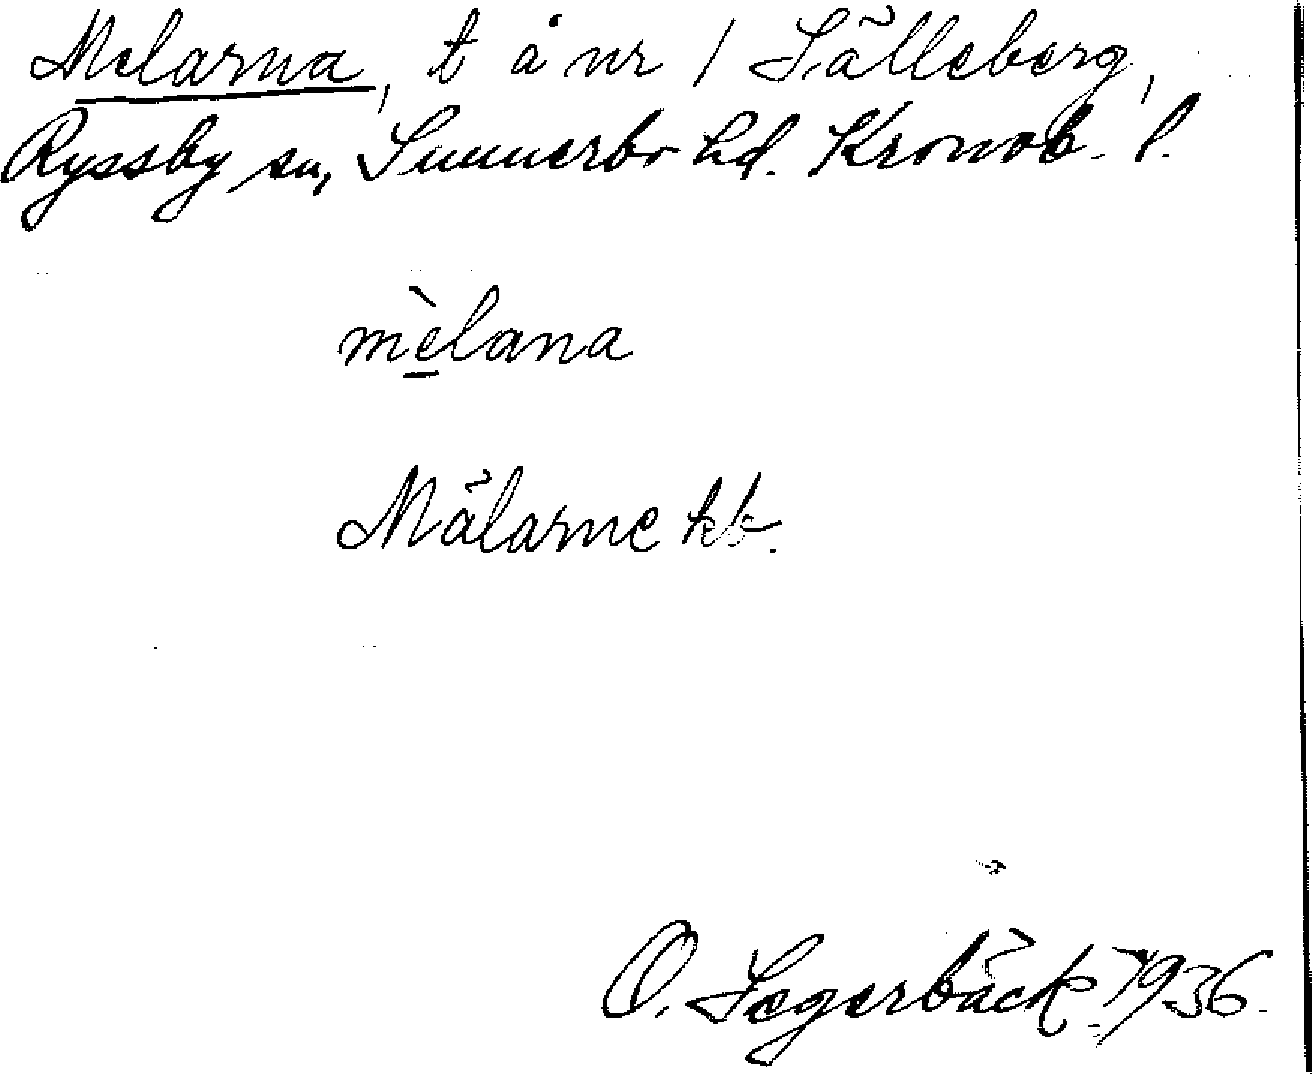 Melarna, t å nr 1 Sälleberg,
Ryssby sn, Sunnerbo hd. Kronob. l.
mèlana
Mälarne kb.
O. Segerbäck 1936.